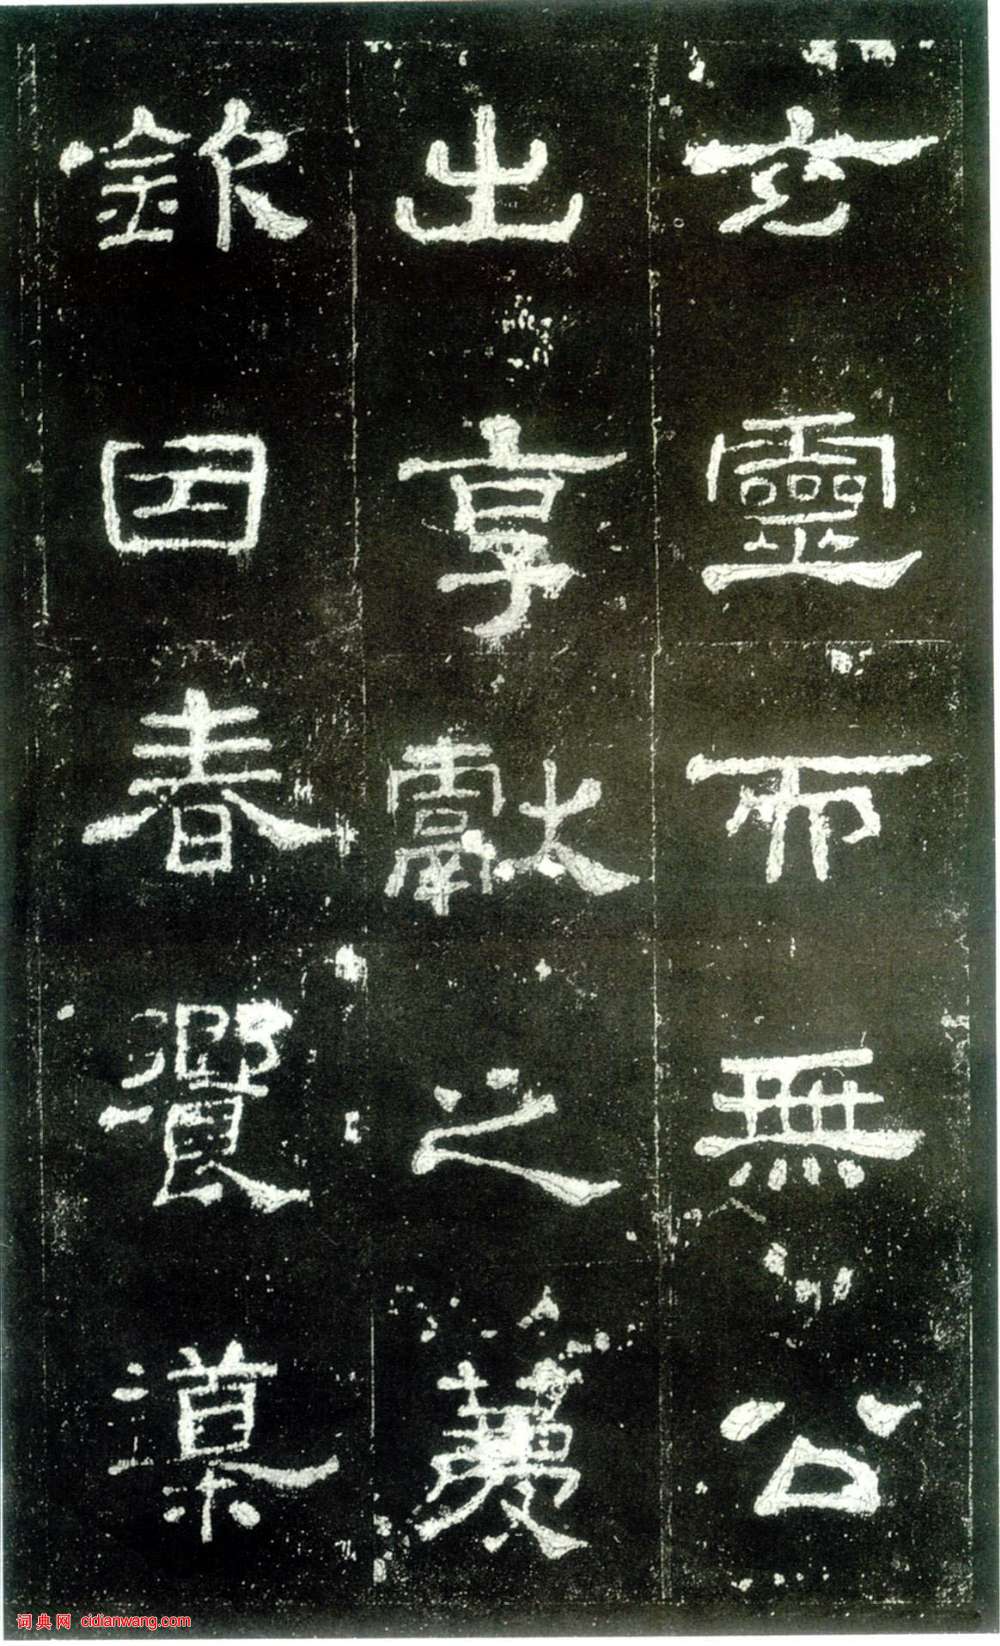 玄靈而無公
出享獻之薦
欽因春饗導
词典网 cidianwang.com